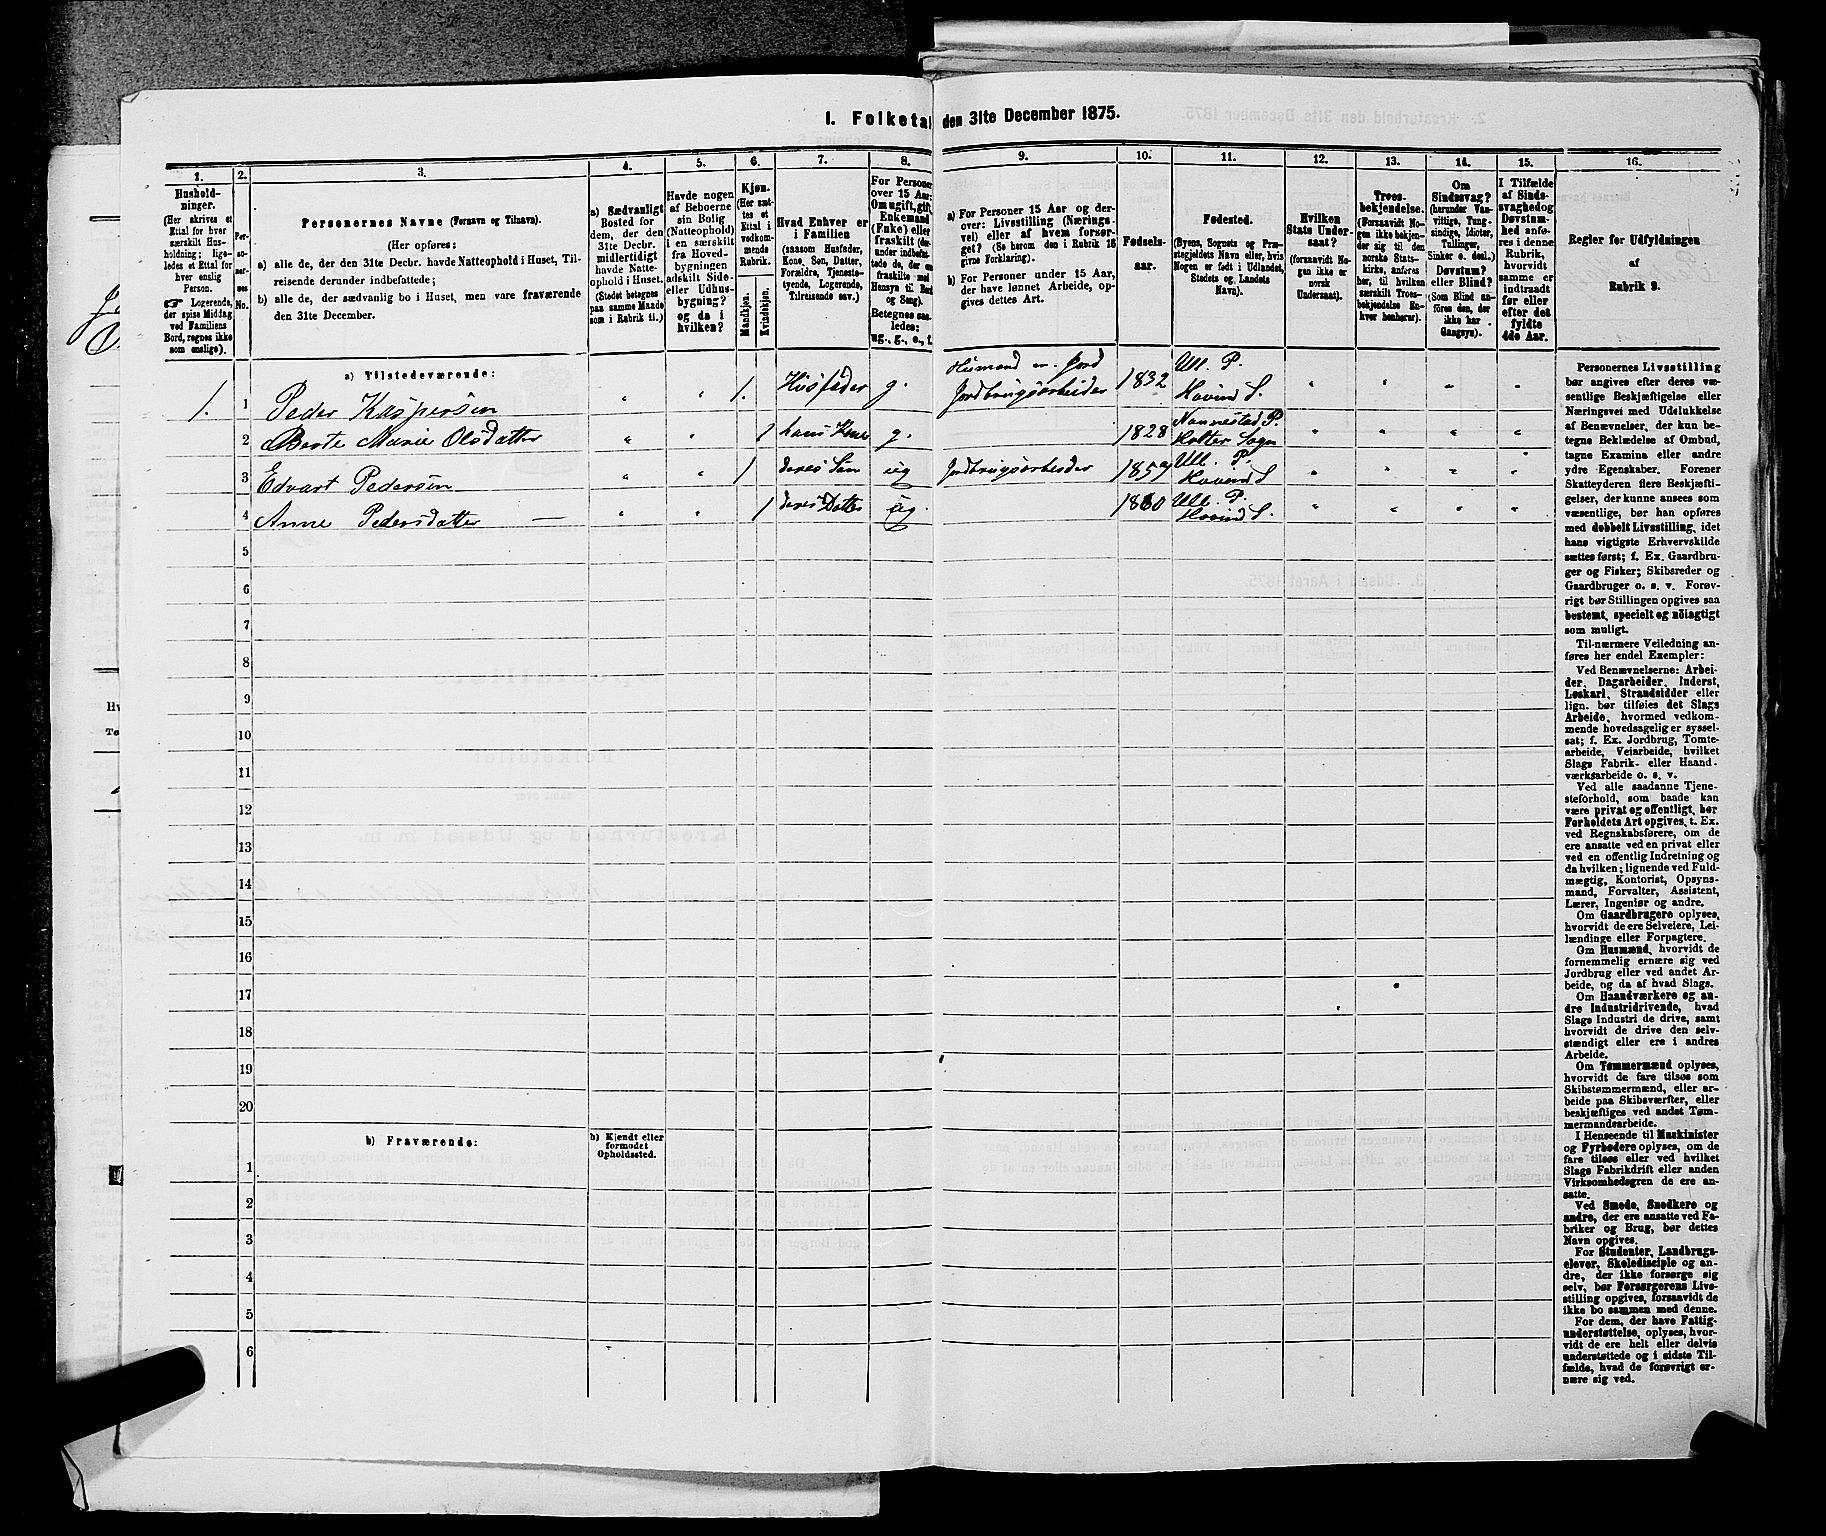 1. Folketal den 31te December 1875.
1.
2.
3.
4.
5.
6.
7.
8.
9.
10.
11.
12.
13.
14.
15.
16.
Husholdninger.
(Her skrives et
Ettal for hver
særskilt Husholdning;
ligeledes et Ettal for
hver enslig
Person.
☞ Logerende,
der spise Middag
ved Familiens
Bord, regnes ikke
som enslige).
Personernes No.
Personernes Navne (Fornavn og Tilnavn).
(Her opføres:
a) alle de, der den 31te Decbr. havde Natteophold i Huset, Tilreisende derunder indbefattede;
b) alle de, der sædvanlig bo i Huset, men vare fraværende
den 31te December.
a) Sædvanligt
Bosted for
dem, der den
31te Decbr.
midlertidigt
havde Natteophold i Huset.
(Stedet betegnes
paa samme Maade
som i Rubrik 11.)
Havde nogen
af Beboerne
sin Bolig
(Natteophold)
i en særskilt
fra Hovedbygningen
adskilt Side-
eller Udhusbygning?
og da i
hvilken?
Kjøn.
(Her sættes et
Ettal i
vedkommende
Rubrik.
Mandkjøn.
Kvindekjøn.
Hvad Enhver er
i Familien
(saasom Husfader,
Kone, Søn, Datter,
Forældre, Tjenestetyende, Logerende,
Tilreisende osv.)
For Personer
over 15 Aar:
Om ugift, gift,
Enkemand
(Enke) eller
fraskilt
Betegnes saaledes:
ug., g., e., f.
a) For Personer 15 Aar og derover: Livsstilling (Næringsvei) eller af hvem forsørget? (Se herom den i Rubrik 16
givne Forklaring).
b) For Personer under 15 Aar,
der have lønnet Arbeide, opgives dettes Art.
Fødselsaar.
Fødested.
(Byens, Sognets og Præstegjeldets Navn eller, hvis
Nogen er født i Udlandet,
Stedets og Landets
Navn).
Hvilken
Stats Undersaat?
(forsaavidt Nogen ikke er
norsk
Undersaat).
Troesbekjendelse.
(Forsaavidt Nogen ikke bekjender sig til den
norske Statskirke, anføres
her, til hvilken
særskilt Troesbekjendelse Enhver henhører).
Om
Sindssvag?
(herunder Vanvittige, Tungsindige, Idioter,
Tullinger,
Sinker o. desl.)
Døvstum?
eller Blind?
(Som Blind anføres den, der
ikke har
Gangsyn).
I Tilfælde
af Sindssvaghed og
Døvstumhed anføres i denne
Rubrik,
hvorvidt
samme er
indtraadt
før eller
efter det
fyldte
4de Aar.
Regler for Udfyldningen
af
Rubrik 9.
a) Tilstedeværende:
1. 1 Peder Kaspersen " " 1. Husfader g. Husmand m. Jord Jordbrugsarbeider 1832 Ull. P. Hovind S. " " " "
2 Berte Marie Olsdatter " " 1 hans Kone g. 1828 Nannestad P. Holter Sogn " " " "
3 Edvart Pedersen " " 1 deres Søn ug Jordbrugsarbeider 1857 Ull. P. Hovind S " " " "
4 Anne Pedersdatter — " " 1 deres Datter ug. 1860 Ull. P. Hovind S. " " " "
5
6
7
8
9
10
11
12
13
14
15
16
17
18
19
20
b) Fraværende:
b) Kjendt eller
formodet
Opholdssted.
1
2
3
4
5
6
Personernes Livsstilling
bør angives efter deres væsentlige Beskjæftigelse eller
Næringsvei med Udelukkelse
af Benævnelser, der kun betegne Beklædelse af Ombud,
tagne Examina eller andre
ydre Egenskaber. Forener
Skatteyderen flere Beskjæftigelser, der kunne ansees som
væsentlige, bør han opføres
med dobbelt Livsstilling, idet
hans vigtigste Erhvervskilde
sættes først; f. Ex. Gaardbruger og Fisker; Skibsreder og
Gaardbruger o. s. v. Forøvrigt bør Stillingen opgives saa
bestemt, specielt og nöiagtigt
som muligt.
Til nærmere Veiledning anføres her endel Exempler:
Ved Benævnelserne: Arbeider, Dagarbeider, Inderst,
Løskarl, Strandsidder eller
lign. bør tilføies det Slags
Arbeide, hvormed vedkommende hovedsagelig er sysselsat; f. Ex. Jordbrug, Tomtearbeide, Veiarbeide, hvilket
Slags Fabrik- eller Haandværksarbeide o. s. v.
Ved alle saadanne Tjenesteforhold, som baade kan
være privat og offentligt, bør
Forholdets Art opgives, t. Ex.
ved Regnskabsførere, om de
ere ansatte ved en privat eller
ved en offentlig Indretning og
da hvilken; lignende ved Fuldmægtig, Kontorist, Opsynsmand, Forvalter, Assistent,
Lærer, Ingeniør og andre.
Om Gaardbrugere oplyses,
hvorvidt de ere Selveiere, Leilændinge eller Forpagtere.
Om Husmænd, hvorvidt de
fornemmelig ernære sig ved
Jordbrug eller ved andet Arbeide, og da af hvad Slags.
Om Haandværkere og andre Industridrivende, hvad
Slags Industri de drive, samt
hvorvidt de drive den selvstændigt eller ere i andres
Arbeide.
Om Tømmermænd oplyses,
hvorvidt de fare tilsøs som
Skibstømmermænd, eller arbeide paa Skibsværfter, eller
beskjæftiges ved andet Tømmermandsarbeide.
I Henseende til Maskinister
og Fyrbødere oplyses, om de
fare tilsøs eller ved hvilket
Slags Fabrikdrift eller anden
Virksomhedsgren de ere ansatte.
Ved Smede, Snedkere og
andre, der ere ansatte ved Fabriker og Brug, bør dettes
Navn opgives.
For Studenter, Landbrugselever, Skoledisciple og andre, der ikke forsørge sig
selv, bør Forsørgerens Livsstilling opgives, forsaavidt de
ikke bo sammen med denne.
For dem, der have Fattigunderstøttelse, oplyses, hvorvidt de ere helt eller delvis
understøttede og i sidste Tilfælde, hvad de forøvrigt ernære sig ved.